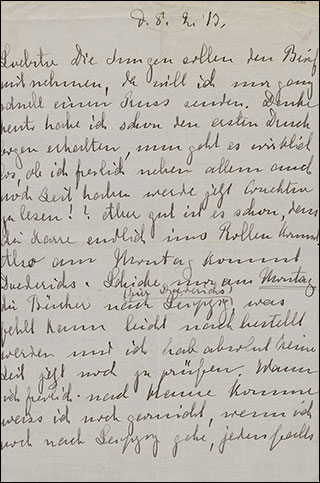 d. 8. 2. 13.
Liebster die Jungen sollen den Brief
mitnehmen, da will ich nur ganz
schnell einen Kuss senden. Denke
heute habe ich schon den ersten Druck
bogen erhalten, nun geht es wirklich
los, ob ich freilich neben allem auch
noch Zeit haben werde jetzt
zu lesen!! Aber gut ist es schon, dass
die Karre endlich ins Rollen kommt.
Also am Montag kommt
Diederichs. Schicke nur am Montag
(für Diederichs)
die Bücher nach Leipzig was
fehlt kann leicht nach bestellt
werden und ich hab absolut keine
Zeit jetzt noch zu prüfen. Wann
ich freilich nach komme
weiss ich noch garnicht, wenn ich
noch nach Leipzig gehe, jedenfalls